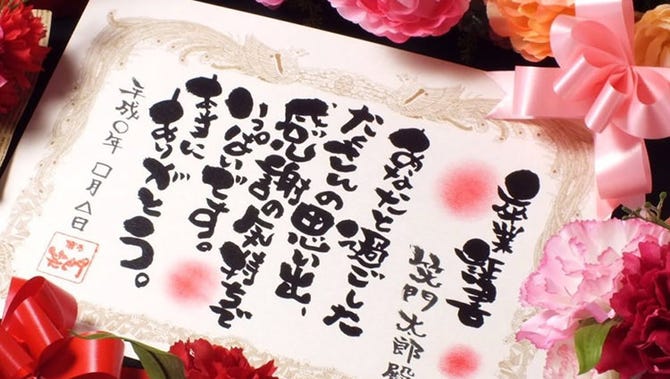 卒業証書
笑門太郎殿
あなたと過ごした
たくさんの思い出、
感謝の気持ちで
いっぱいです。
本当に
ありがとう。
平成〇年 □月 △日